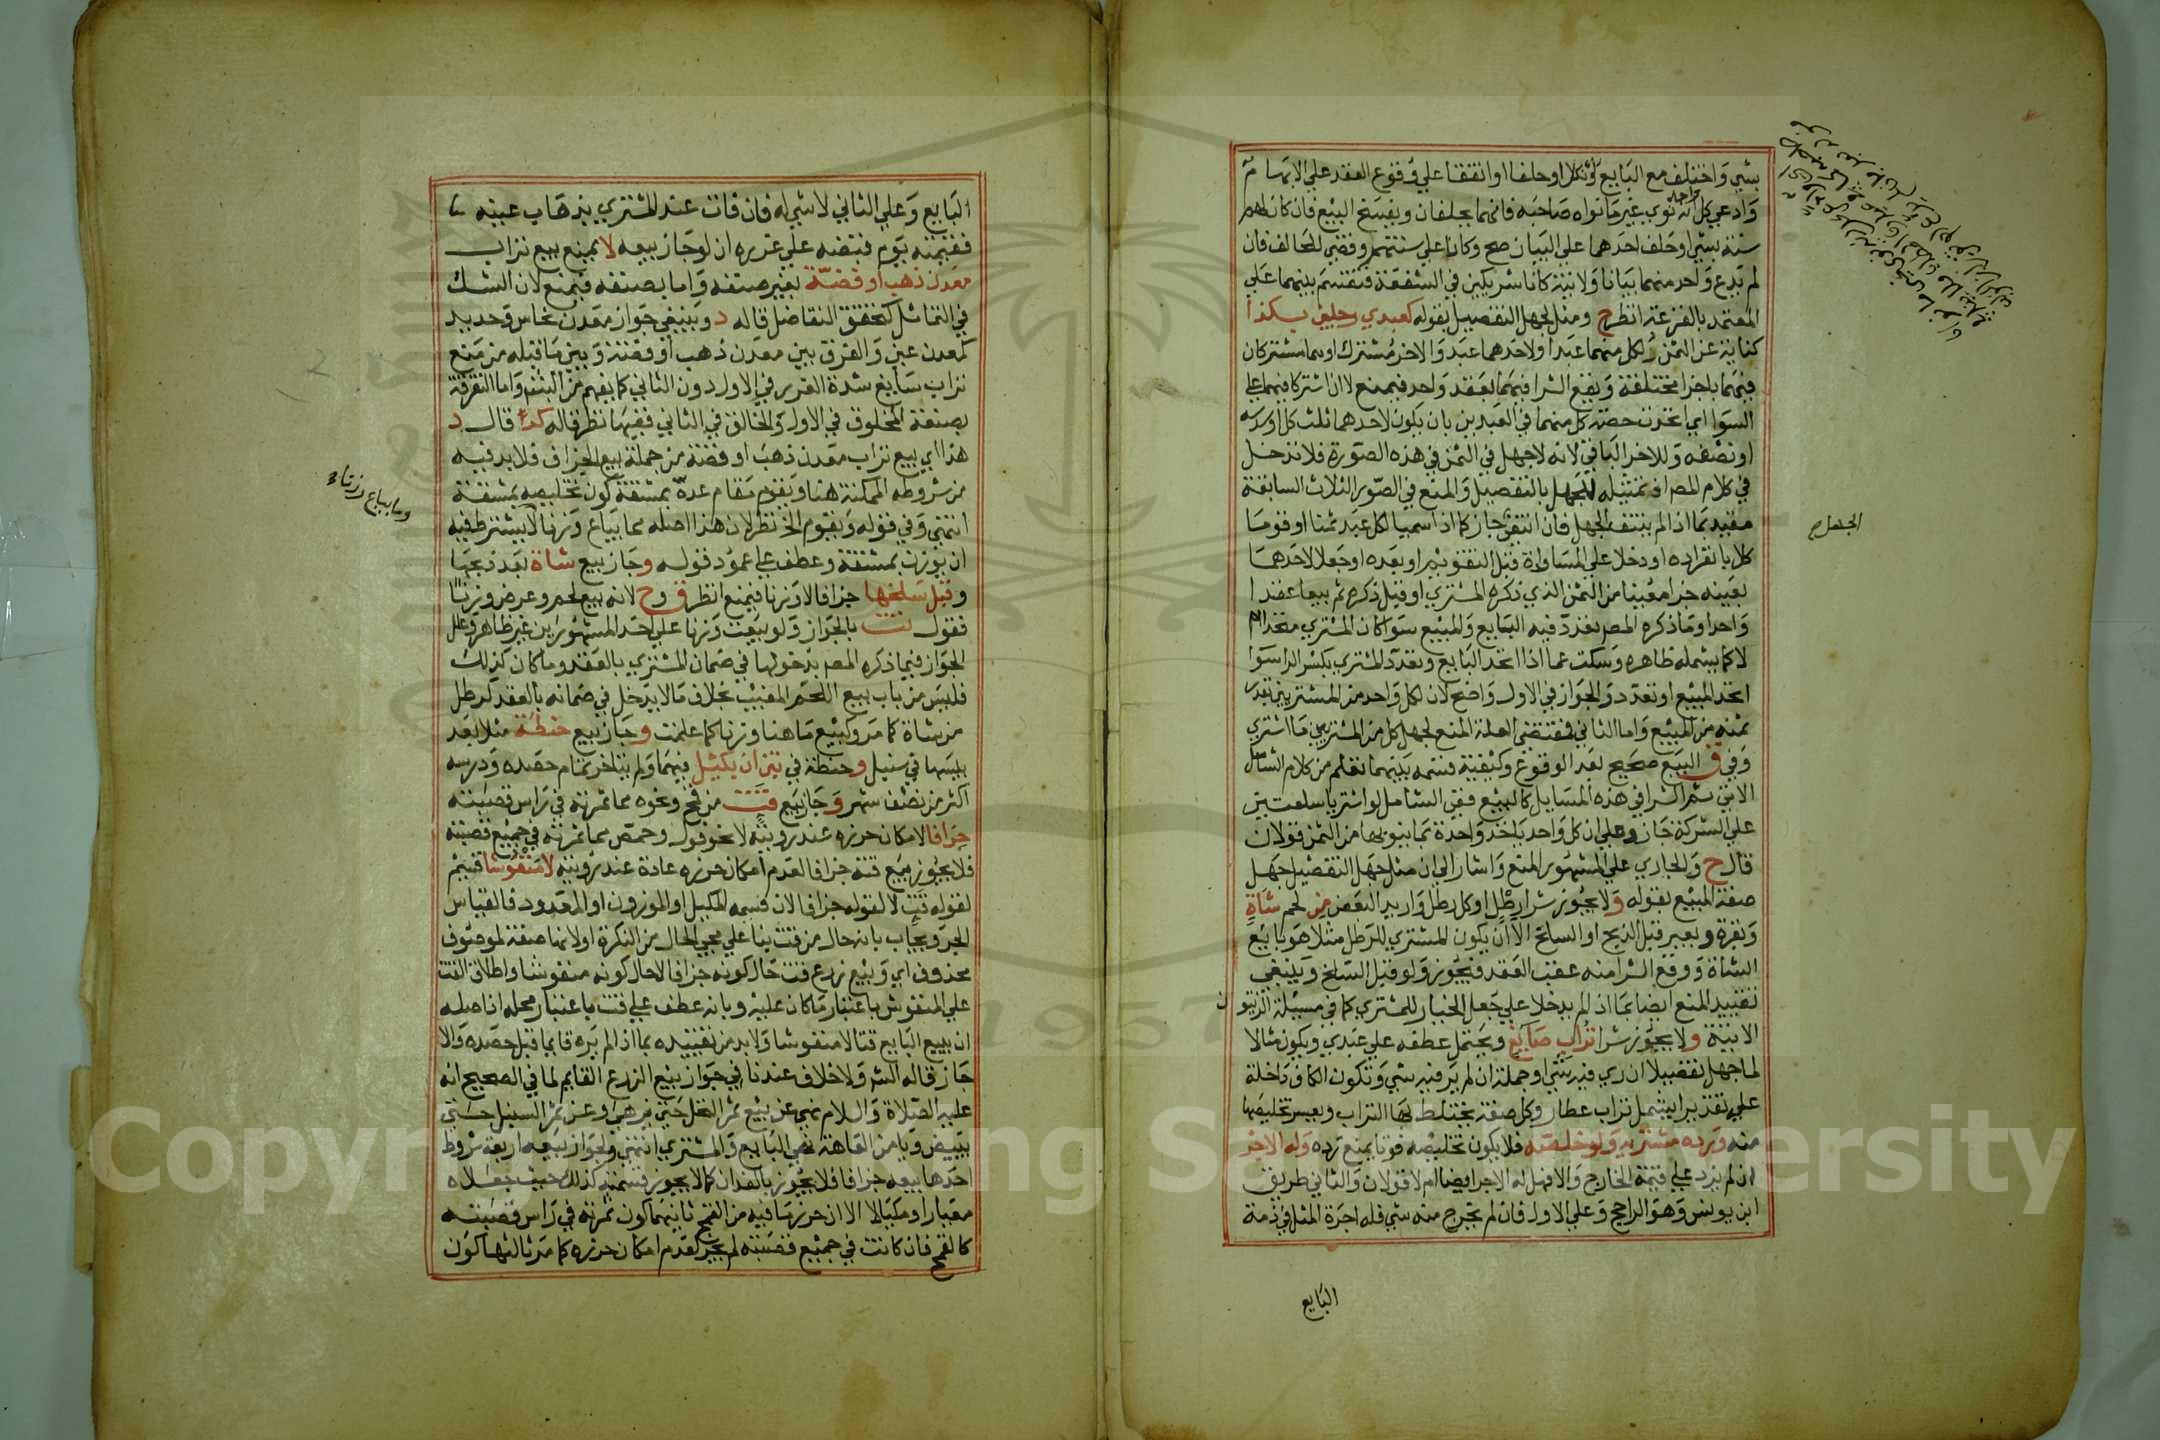 بشي واختلف مع البايع ونكلا او حلفا او اتفقا علي وقوع العقد علي الابهام
وادعي كل واحد انه نوي غير ما نواه صاحبه فانهما يحلفان ويفسخ البيع فان كان لهم
سنة بشي او حلف احدهما علي البيان صح وكانا علي سنتهم وقضي للحالف فان
لم يدع واحد منهما بيانا ولا نية كانا شريكين في الشفقة فتقسم بينهما علي
المعتمد بالقرعة انظر ح ومثل لجهل التفصيل بقوله كعبدي رجلين بكذا
كناية عن الثمن لكل منهما عبد او لاحدهما عبد والاخر مشترك او هما مشتركان
فيهما باجزا مختلفة ويقع الشرا فيهما بعقد واحد فيمنع لا ان اشتركا فيهما علي
السوا اي اتحدت حصة كل منهما في العبدين بان يكون لاحدهما ثلث كل او ربعه
او نصفه وللاخر الباقي لانه لا جهل في الثمن في هذه الصورة فلا تدخل
في كلام المص اذ تمثيله لجهل بالتفصيل والمنع في الصور الثلاث السابقة
مقيد بما اذا لم ينتف الجهل فان انتفي جاز كما اذا سميا لكل عبد ثمنا او قوما
كلا بانفراده او دخلا علي المساواة قبل التقويم او بعده او جعلا لاحدهما
بعينه جزا معينا من الثمن الذي ذكره المشتري او قبل ذكره ثم بيعا عقدا
واحدا وما ذكره المص تعدد فيه البايع والمبيع سوا كان المشتري متحدا ام
لا كما يشمله ظاهره وسكت عما اذا اتحد البايع وتعدد المشتري بكسر الرا سوا
اتحد المبيع او تعدد والجواز في الاول واضح لان لكل واحد من المشتريين بقدر
ثمنه من المبيع واما الثاني فمقتضي العلة المنع لجهل كل من المشتريين ما اشتري
وفي ق البيع صحيح بعد الوقوع وكيفية قسمه بينهما تعلم من كلام الشامل
الاتي ثم الشرا في هذه المسايل كالبيع ففي الشامل لو اشتريا سلعتين
علي الشركة جاز وعلي ان كل واحد ياخذ واحدة بما ينوبها من الثمن قولان
قال ح والجاري علي المشهور المنع واشار الي ان مثل جهل التفصيل جهل
صفة المبيع بقوله ولا يجوز شرا رطل او كل رطل واريد البعض من لحم شاة
وبقرة وبعير قبل الذبح او السلخ الا ان يكون المشتري للرطل مثلا هو بايع
الشاة ووقع الشرا منه عقب العقد فيجوز ولو قبل السلخ وينبغي
تقييد المنع ايضا بما اذا لم يدخلا علي جعل الخيار للمشتري كما في مسيلة الزيتون
الاتية ولا يجوز شرا تراب صايغ ويحتمل عطفه علي عبدي ويكون مثالا
لما جهل تفصيلا ان ري فيه شي او جملة ان لم ير فيه شي وتكون الكاف داخلة
علي تقديرا يشمل تراب عطار وكل صنعة يختلط بها التراب ويعسر تخليصها
منه ورده مشتريه ولو خلصه فلا يكون تخليصه فوتا يمنع رده وله الاجر
ان لم يزد علي قيمة الخارج والا فهل له الاجر ايضا ام لا قولان والثاني طريق
ابن يونس وهو الراجح وعلي الاول فان لم يخرج منه شي فله اجرة المثل في ذمة
البايع
الجهل صح
البايع وعلي الثاني لا شي له فان فات عند المشتري بذهاب عينه
فقيمته يوم قبضه علي غرره ان لو جاز بيعه لا يمنع بيع تراب
معدن ذهب او فضة بغير صنفه واما بصنفه فيمنع لان الشك
في التماثل كتحقق التفاضل قاله د وينبغي جواز معدن نحاس وحديد
كمعدن عين والفرق بين معدن ذهب او فضة وبين ما قبله من منع
تراب صايغ شدة الغرر في الاول دون الثاني كما يفهم من الشم واما التفرقة
بصنعة المخلوق في الاول والخالق في الثاني ففيها نظر قاله كذا قال د
هذا اي بيع تراب معدن ذهب او فضة من جملة بيع الجزاف فلا بد فيه
من شروطه الممكنة هنا ويقوم مقام عده بمشقة كون تخليصه بمشقة
انتهي وفي قوله ويقوم الخ نظر لان هذا اصله مما يباع وزنا لا يشترط فيه
ان يوزن بمشقة وعطف علي عمود قوله وجاز بيع شاة بعد ذبحها
وقبل سلخها جزافا لا وزنا فيمنع انظر ق وح لانه بيع لحم وعرض وزنا
فقول تت بالجواز ولو بيعت وزنا علي احد المشهورين غير ظاهر وعلل
الجواز فيما ذكره المص بدخولها في ضمان المشتري بالعقد وما كان كذلك
فليس من باب بيع اللحم المغيب بخلاف ما لا يدخل في ضمانه بالعقد كرطل
من شاة كما مر وكبيع ما هنا وزنا كما علمت وجاز بيع حنطة مثلا بعد
يبسها في سنبل وحنطة في تبن ان بكيل فيهما ولم يتاخر تمام حصده ودرسه
اكثر من نصف شهر وجاز بيع قت من قمح ونحوه مما ثمرته في راس قصبته
جزافا لامكان حرزه عند رويته لا نحو فول وحمص مما ثمرته في جميع قصبته
فلا يجوز بيع قته جزافا لعدم امكان حرزه عادة عند رويته لا منفوشا قتيم
لقوله قت لا لقوله جزافا لان قسمه المكيل او الموزون او المعدود فالقياس
الجر ويجاب بانه حال من قت بنا علي مجي الحال من النكرة او لانها صفة لموصوف
محذوف اي وبيع زرع قت حال كونه جزافا لا حال كونه منفوشا واطلاق القت
علي المنفوش باعتبار ما كان عليه وبانه عطف علي قت باعتبار محله اذ اصله
ان يبيع البايع قتا لا منفوشا ولا بد من تقييده بما اذا لم يره قايما قبل حصده والا
جاز قاله الشر ولا خلاف عندنا في جواز بيع الزرع القايم لما في الصحيح انه
عليه الصلاة والسلام نهي عن بيع ثمر النخل حتي يزهو وعن ثمر السنبل حتي
يبيض ويامن العاهة نهي البايع والمشتري انتهي ولجواز بيعه اربعة شروط
احدها بيعه جزافا فلا يجوز بالفدان كما لا يجوز قسمته كذلك حيث جعلاه
مقيارا ومكيالا الا ان حرز ما فيه من القمح ثانيها كون ثمرته في راس قصبته
كالقمح فان كانت في جميع قصبته لم يجز لعدم امكان حرزه كما مر ثالثها كون
وما يباع وزنا لا